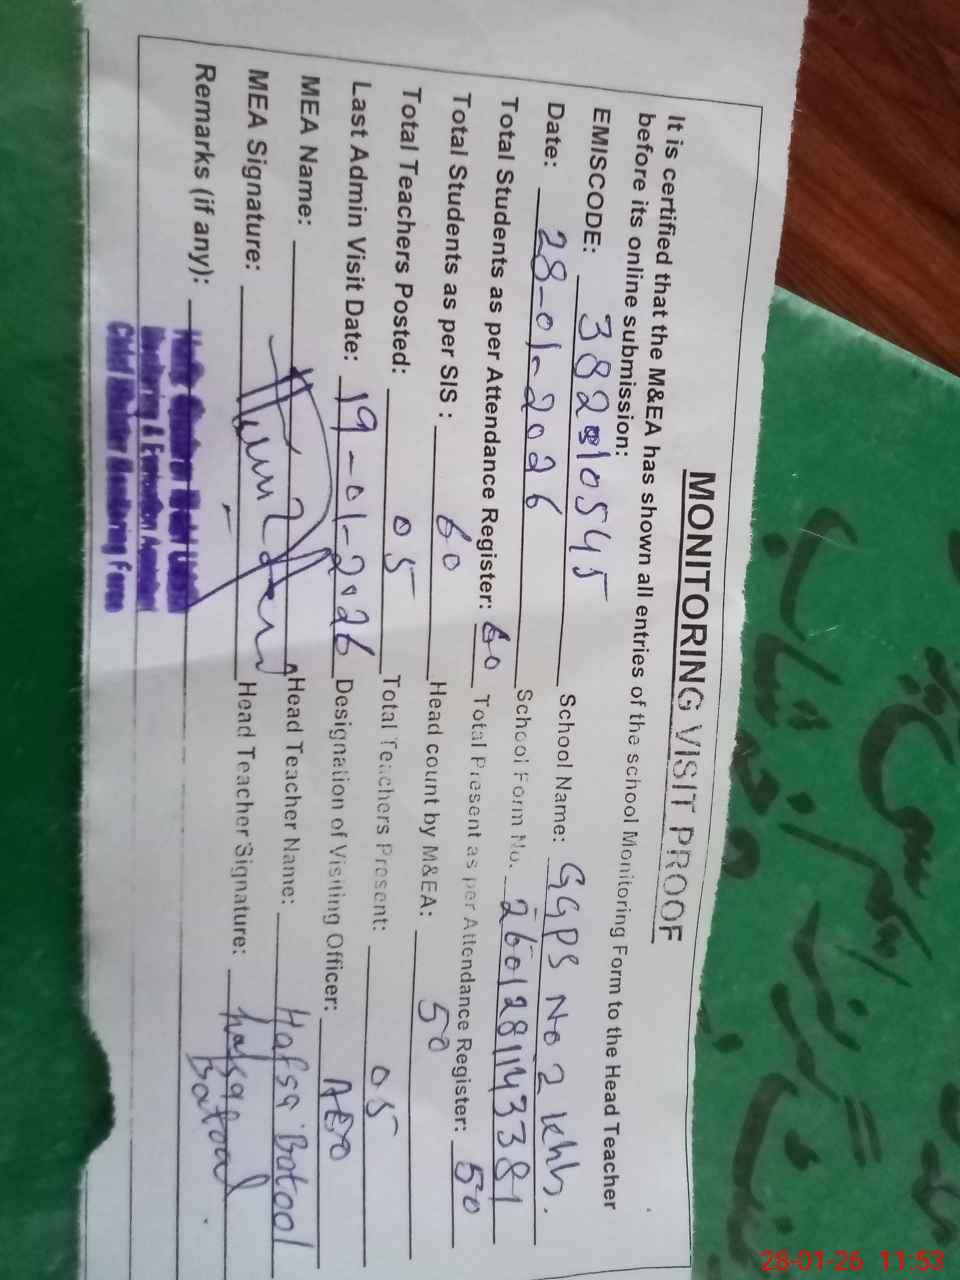 MONITORING VISIT PROOF
It is certified that the M&EA has shown all entries of the school Monitoring Form to the Head Teacher
before its online submission:
EMISCODE: 38210545 School Name: GGPS No 2 khh.
Date: 28-01-2026 School Form No. 2601281143381
Total Students as per Attendance Register: 60 Total Present as per Attendance Register: 50
Total Students as per SIS : 60 Head count by M&EA: 50
Total Teachers Posted: 05 Total Teachers Present: 05
Last Admin Visit Date: 19-01-2026 Designation of Visiting Officer: AEO
MEA Name: Head Teacher Name: Hafsa Batool
MEA Signature: Head Teacher Signature: hafsa Batool
Remarks (if any):
Monitoring & Evaluation Assistant
Chief Minister Monitoring Force
28-01-26 11:53